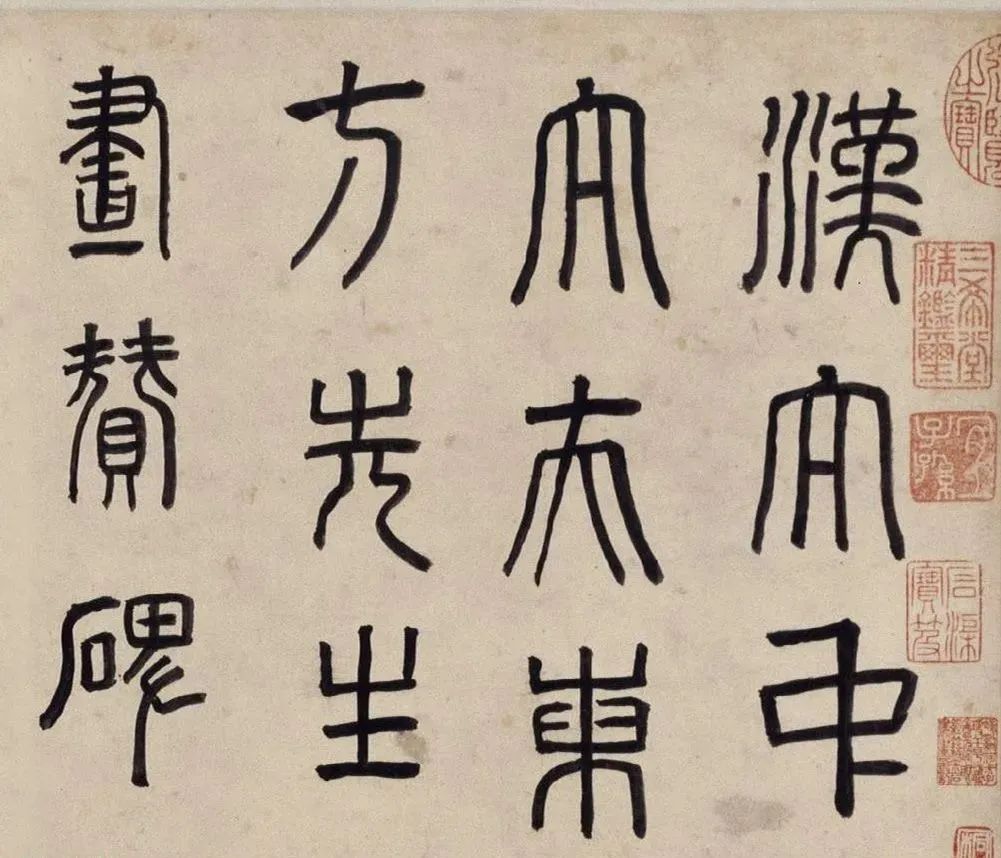 漢大中
大夫東
方先生
畫贊碑
御覽之寶
三希堂精鑑璽
宜子孫
石渠寶笈